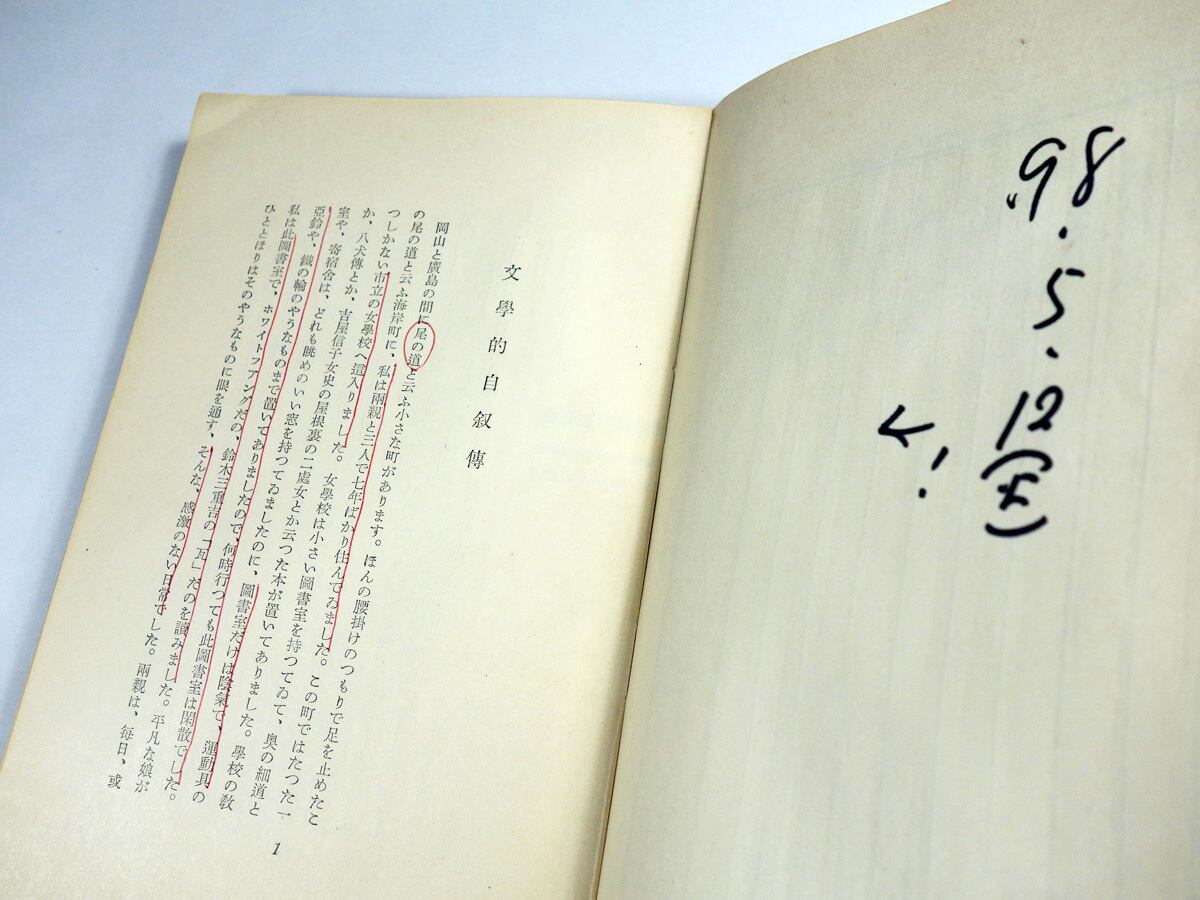 '98.5.12(火)
!
←
文學的自叙傳
岡山と廣島の間に尾の道と云ふ小さな町があります。ほんの腰掛けのつもりで足を止めたこ
の尾の道と云ふ海岸町に、私は兩親と三人で七年ばかり住んでゐました。この町ではたつた一
つしかない市立の女學校へ這入りました。女學校は小さい圖書室を持つてゐて、奥の細道と
か、八犬傳とか、吉屋信子女史の屋根裏の二處女とか云つた本が置いてありました。學校の教
室や、寄宿舍は、どれも眺めのいい窓を持つてゐましたのに、圖書室だけは陰氣で、運動具の
亞鈴や、鐵の輪のやうなものまで置いてありましたので、何時行つても此圖書室は閑散でした。
私は此圖書室で、ホワイトフアングだの、鈴木三重吉の「瓦」だのを讀みました。平凡な娘が
ひととほりはそのやうなものに眼を通す、そんな、感激のない日常でした。兩親は、毎日、或
1